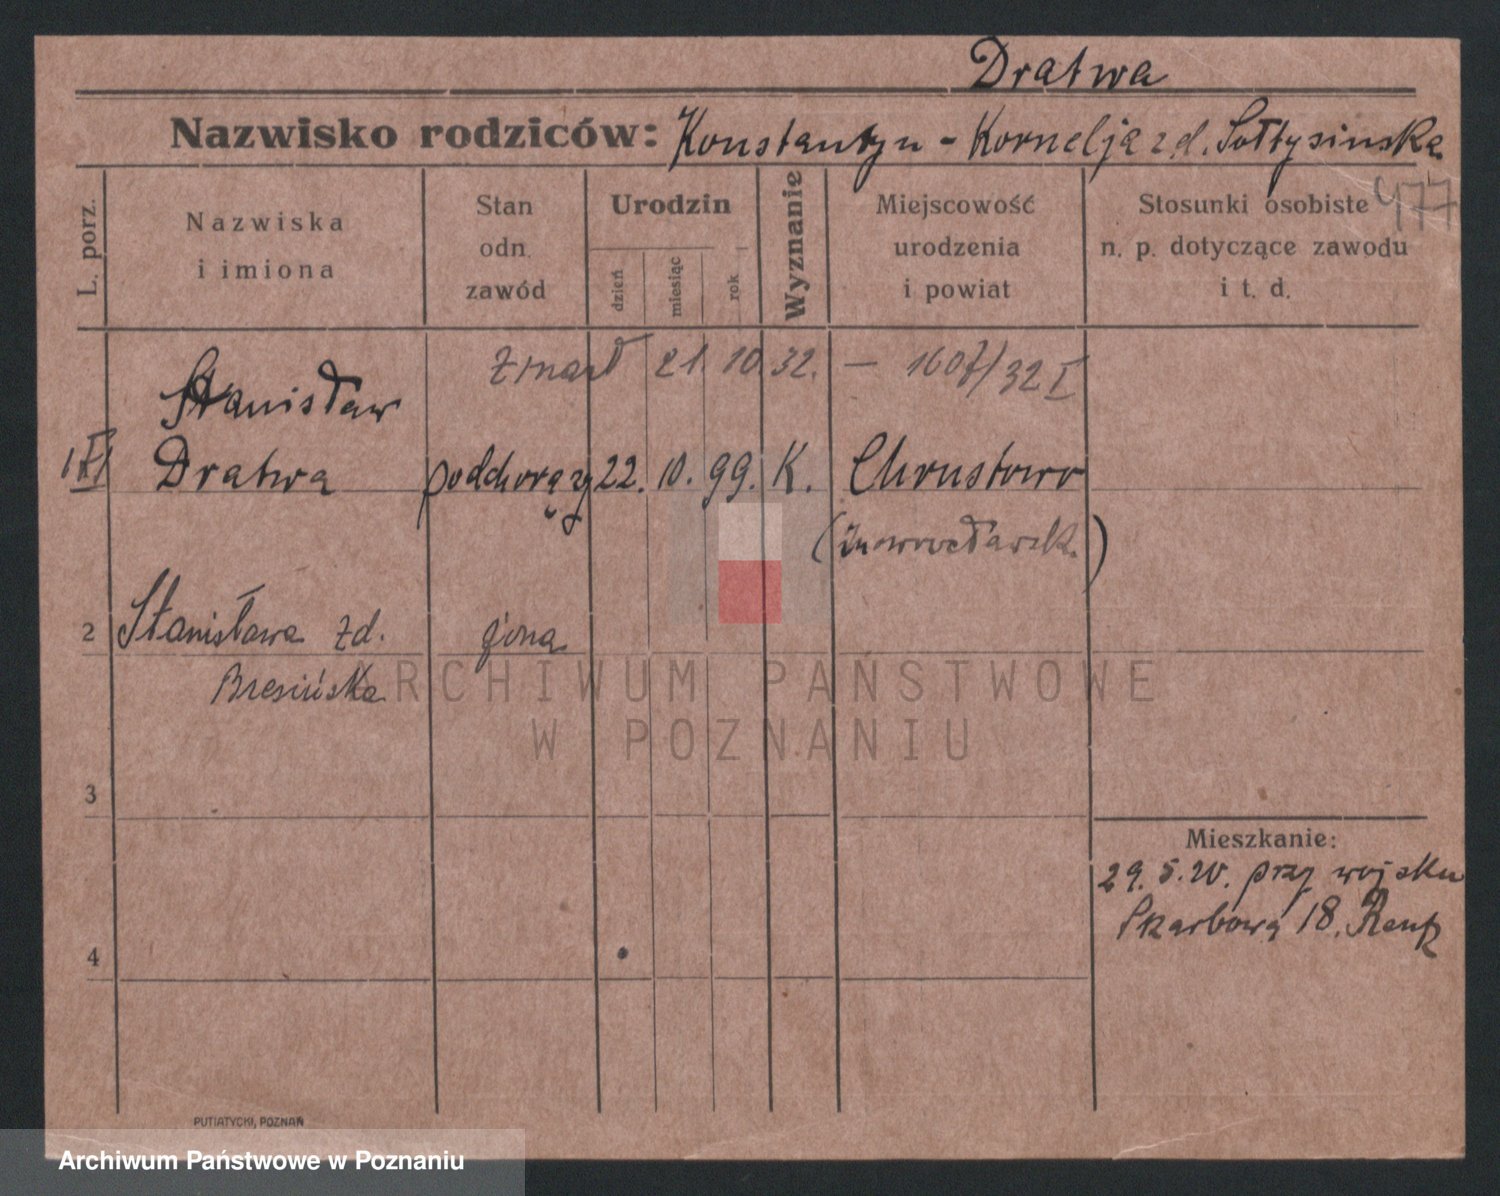 Dratwa
Nazwisko rodziców: Konstantyn - Kornelja z d. Sołtysińska
477
L. porz.
Nazwiska
i imiona
Stan
odn.
zawód
Urodzin
dzień
miesiąc
rok
Wyznanie
Miejscowość
urodzenia
i powiat
Stosunki osobiste
n. p. dotyczące zawodu
i t. d.
zmarł 21. 10. 32. — 1607/32 I
Stanisław
Dratwa podchorąży 22. 10. 99. K. Chrustowo
(Inowrocławsk.)
2 Stanisława zd. żona
Bresińska
ARCHIWUM PAŃSTWOWE
W POZNANIU
3
Mieszkanie:
29. 5. 20. przy wojsku
Skarbowa 18.
4
PUTIATYCKI, POZNAŃ
Archiwum Państwowe w Poznaniu